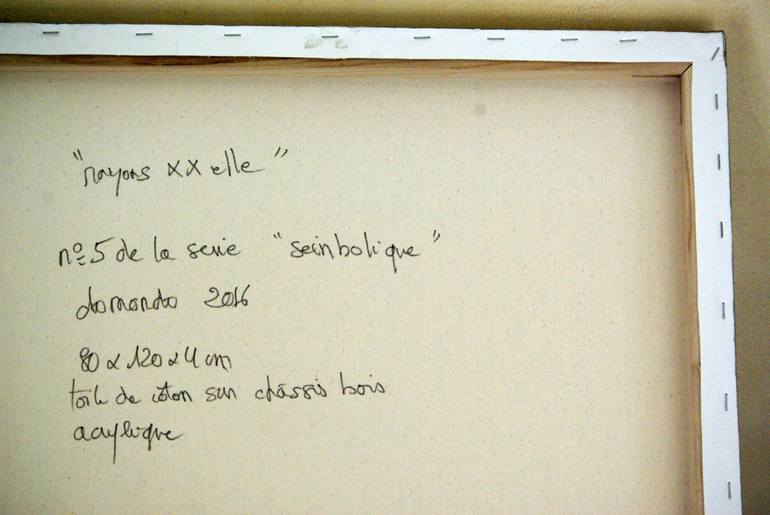 "rayons xx elle"
nº5 de la serie "seinbolique"
domando 2016
80 x 120 x 4 cm
toile de coton sur châssis bois
acrylique